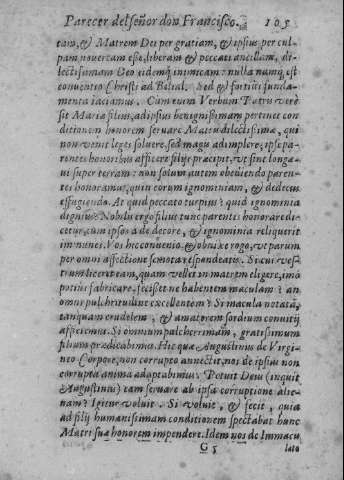 Parecer del señor don Francisco. 105
tam, & Matrem Dei per gratiam, & ipsius per cul-
pam nouercam esse, liberam & peccati ancillam, di-
lectissimam Deo idemq; inimicam: nulla namq; est
conuentio Christi ad Belial. Sed & fortiùs funda-
menta iaciamus. Cum enim Verbum Patris verè
sit Mariæ filius, ad ipsius benignissimam pertinet con
ditionem honorem seruare Matris dilectissimæ, qui
non venit leges soluere, sed magis adimplere; ipse pa-
rentes honoribus afficere filijs præcipit, vt sint longæ-
ui super terram: non solum autem obediendo paren-
tes honoramus, quin eorum ignominiam, & dedecus
effugiendo. At quid peccato turpius? quid ignominia
dignius? Nobilis ergo filius tunc parentes honorare di-
cetur, cum ipsos à dedecore, & ignominia reliquerit
immunes. Vos hic conuenio, & obnixe rogo, vt parum
per omni affectione semota respondeatis. Si cui ves-
trum liceret eam, quam vellet in matrem eligere, imò
potius fabricare, fecisset ne habentem maculam? an
omni pulchritudine excellentem? Si macula notatã,
tanquam crudelem, & amatorem sordium conuitijs
afficiemus. Si omnium pulcherrimam, gratissimum
filium prædicabimus. Hic quæ Augustinus de Virgi-
neo Corpore, non corrupto annectit, nos de ipsius non
corrupta anima adaptabimus. Potuit Deus (inquit
Augustinus) eam seruare ab ipsa corruptione alie-
nam? Igitur voluit. Si voluit, & fecit, quia
ad filij humanissimam conditionem spectabat hunc
Matri suæ honorem impendere. Idem nos de Immacu
G 5 lata